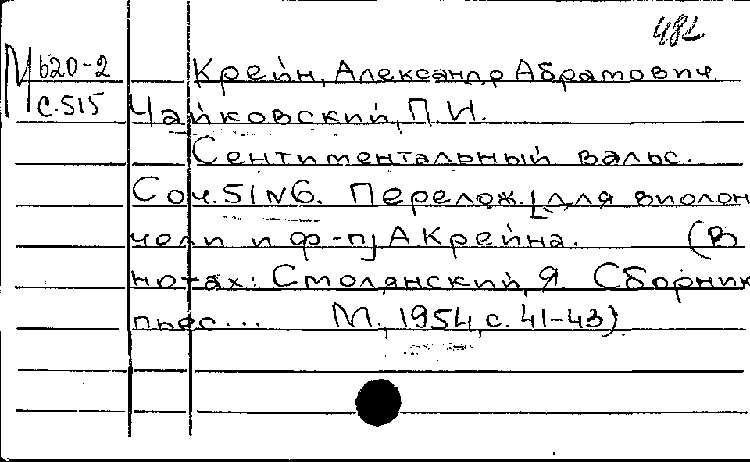 482
М620-2 Крейн, Александр Абрамович
С.515 Чайковский, П.И.
Сентиментальный вальс.
Соч. 51 N6. Перелож. [для виолон
чели и ф-п] А Крейна. (В
нотах: Смолянский, Я. Сборник
пьес... М., 1954, с. 41-43)